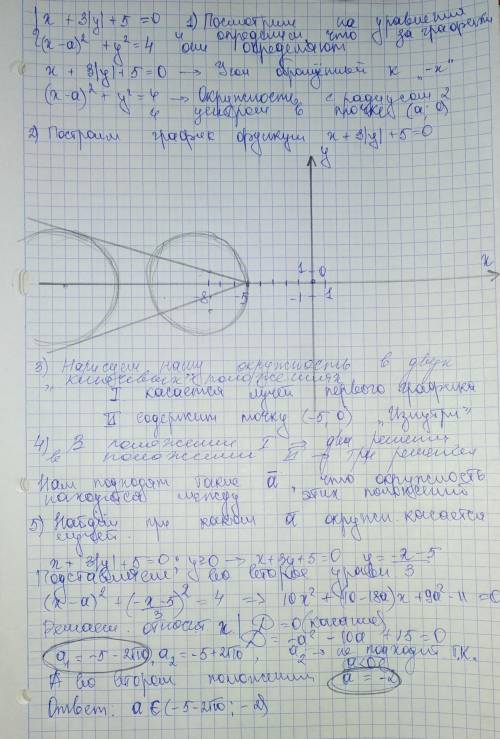 {x + 3|y| + 5 = 0 1) Посмотрим на уравнения
(x-a)² + y² = 4 и определим, что за графики
они определяют
x + 3|y| + 5 = 0 → Угол обращённый к "-x"
(x-a)² + y² = 4 → Окружность с радиусом 2
и центром в точке (a; 0)
2) Построим график функции x + 3|y| + 5 = 0
y
x
-8 -5 1 0
-1 1
3) Нарисуем нашу окружность в двух
"ключевых" положениях
I касается лучей первого графика
II содержит точку (-5, 0) "Изнутри"
4) В положении I → два решения
в положении II → три решения
Нам подходят такие a, что окружность
находится между этих положений
5) Найдём при каком a окружн. касается
лучей.
x + 3|y| + 5 = 0; y≥0 → x + 3y + 5 = 0 y = -x-5
3
Подставляем во второе уравн
(x-a)² + (-x-5
3)² = 4 => 10x² + (10-18a)x + 9a² - 11 = 0
Решаем относит x D = 0 (касание)
D = -a² - 10a + 15 = 0
a₁ = -5-2√10, a₂ = -5+2√10, a₂ → не подходит т.к.
А во втором положении a = -2
Ответ: a ∈ (-5-2√10; -2)